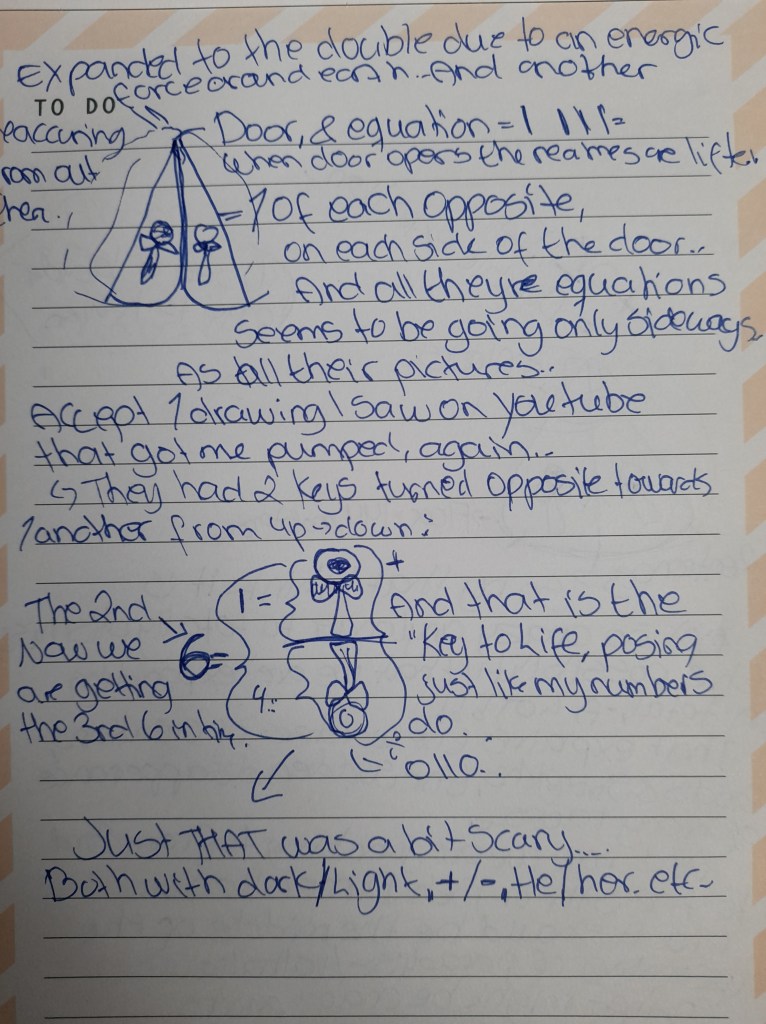 Expanded to the double due to an energic
force arand earth... And another
TO DO
reaccuring
from out
her..,
Door, & equation = | | | | =
when door opens the realmes are lifted
= 1 Of each opposite,
on each side of the door..
And all they're equations
seems to be going only sideways,
As all their pictures...
Accept 1 drawing I saw on youtube
that got me pumped, again...
↳ They had 2 keys turned opposite towards
1 another from up → down:
1 = +
The 2nd
Now we
are getting
the 3rd 6 in
6 =
4.:
And that is the
"Key to Life, posing
just like my numbers
do.
0110..
Just THAT was a bit scary....
Both with dark/Light, +/-, He/her. etc..